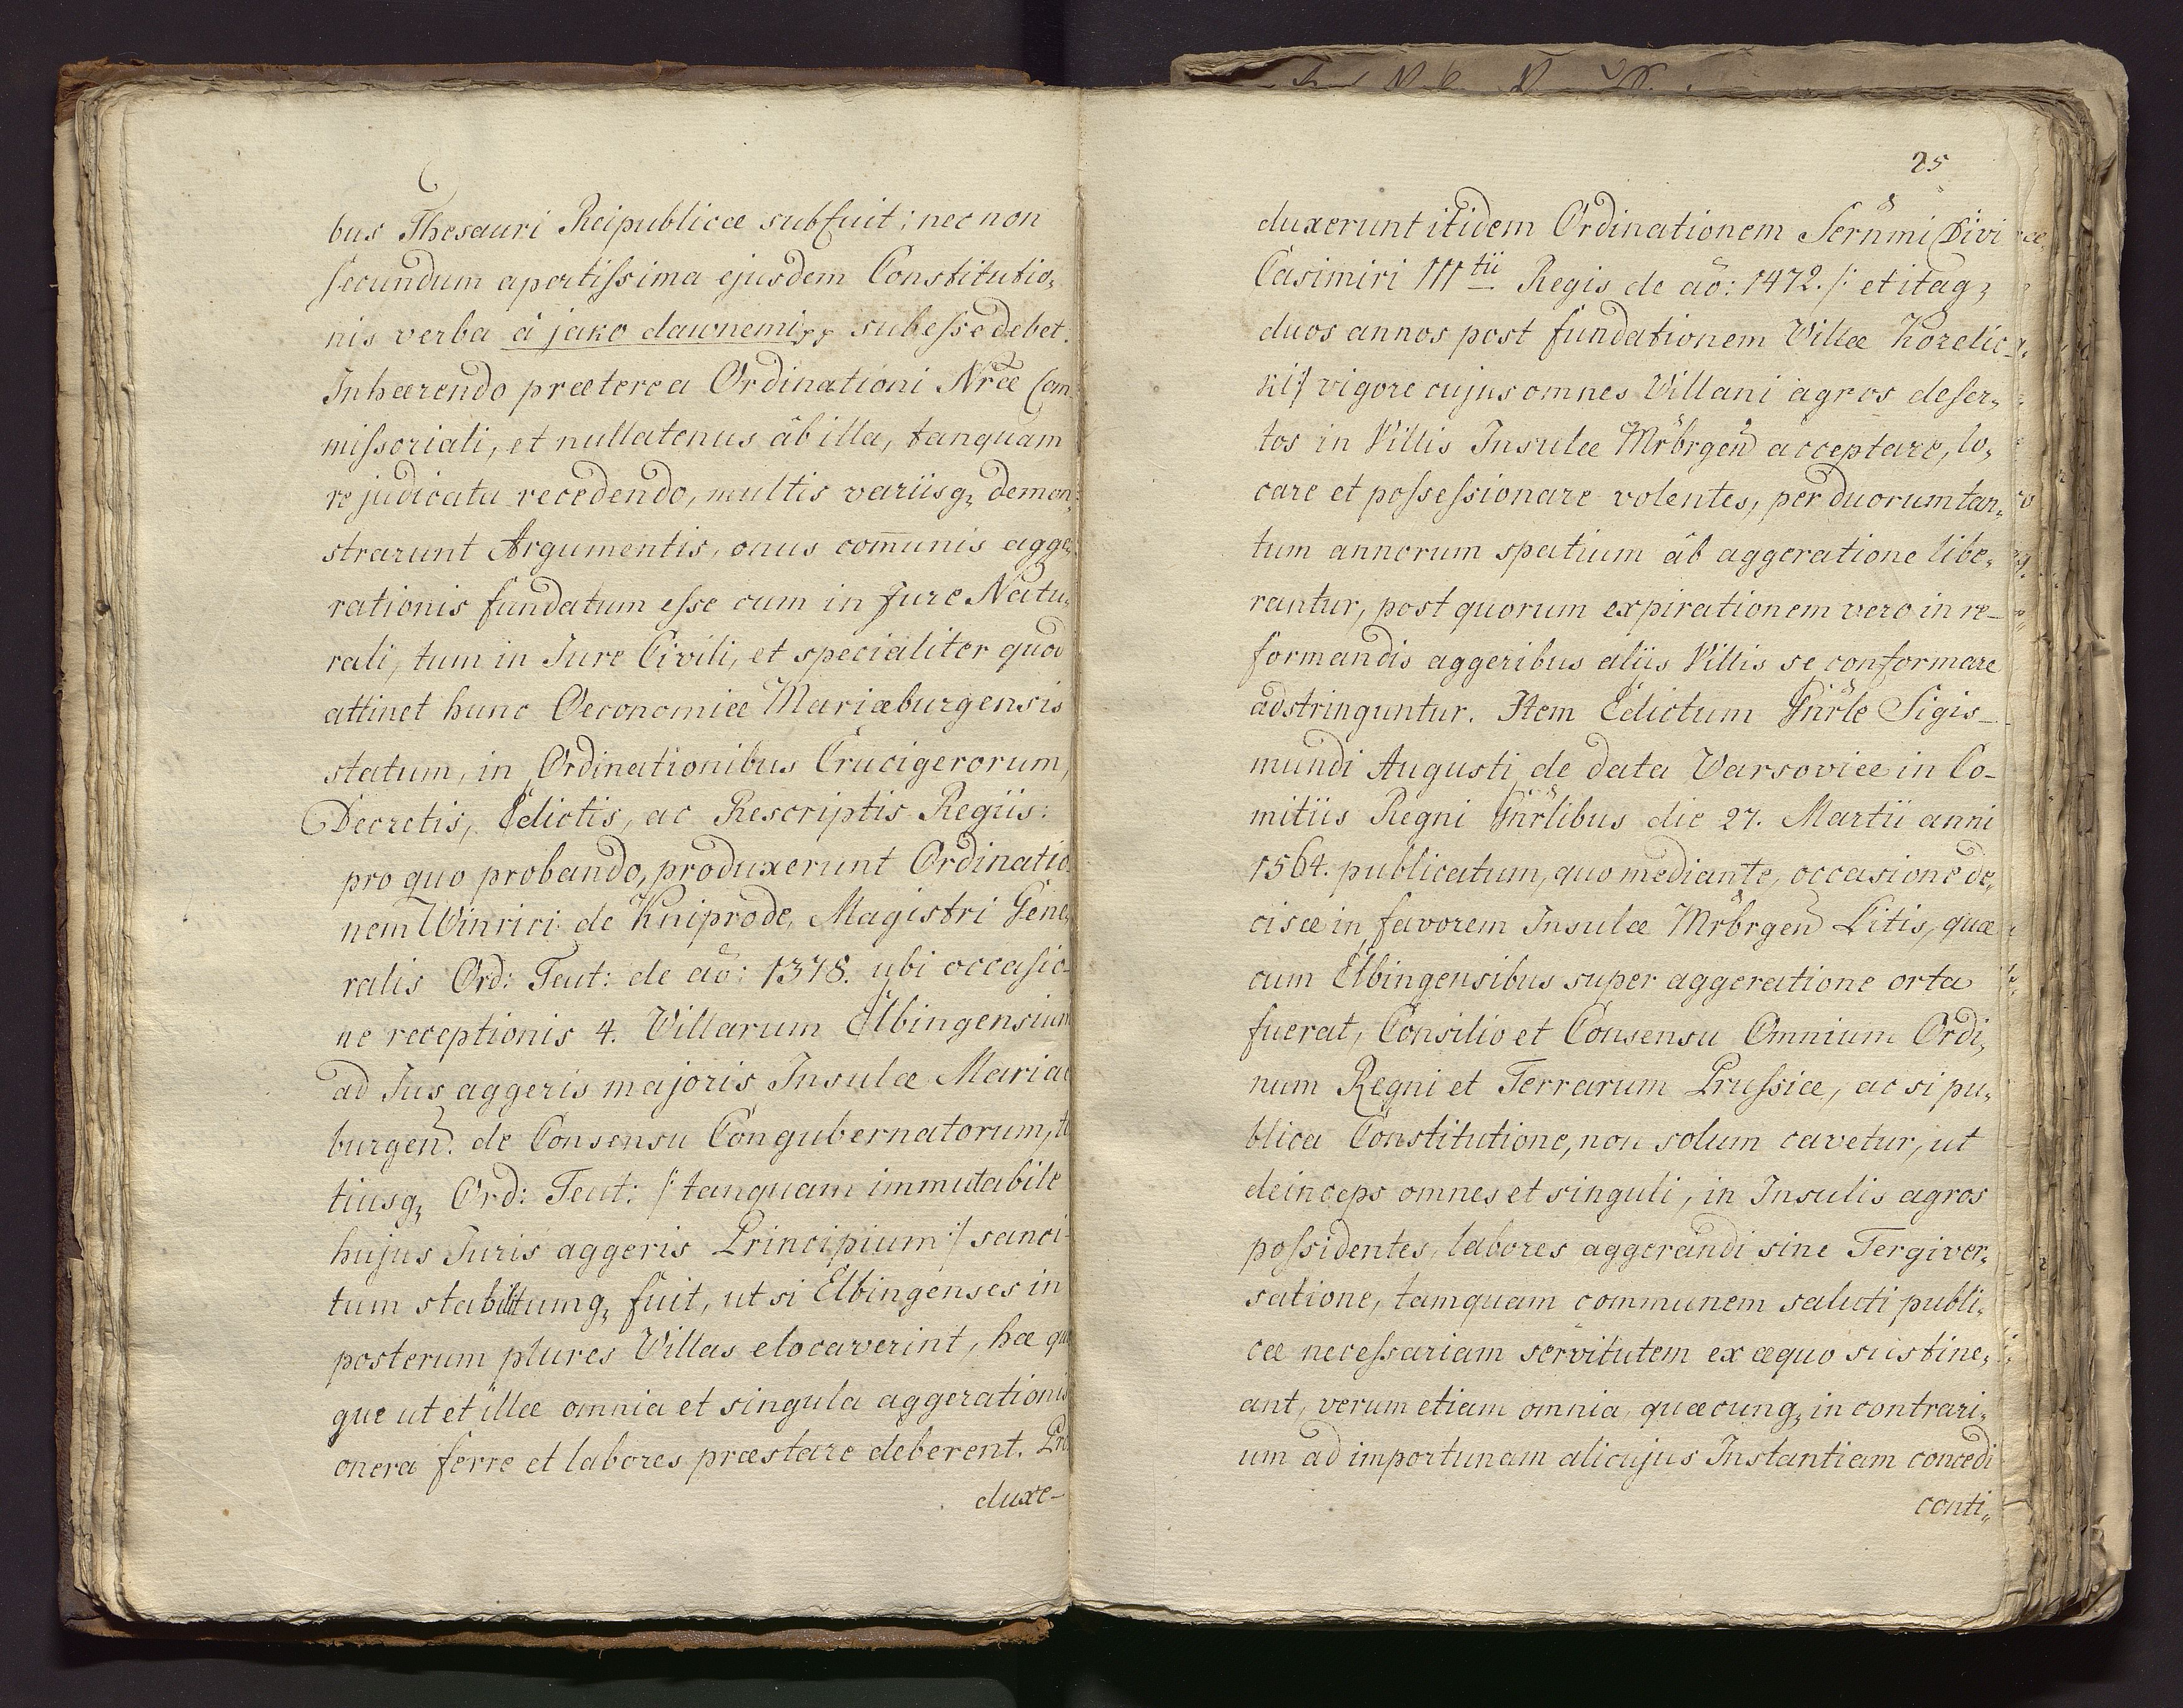 bus Thesauri Reipublicæ subfuit; nec non
secundum apertissima ejusdem Constitutio„
nis verba à jako dawnemi subesse debet.
Inhærendo præterea Ordinationi Nræ Com
missoriali, et nullatenus âb illa, tanquam
re judicata recedendo, multis variisq, demon„
strarunt Argumentis, onus com̄unis agge„
rationis fundatum esse cum in Jure Natu„
rali, tum in Jure Civili, et specialiter quod
attinet hunc Oeconomiæ Mariæburgensis
statum, in Ordinationibus Crucigerorum,
Decretis, Edictis, ac Rescriptis Regiis:
pro quo probando, produxerunt Ordinatio„
nem Winrici de Kniprode, Magistri Gene„
ralis Ord: Teut: de aõ: 1378. ubi occasio-
ne receptionis 4. Villarum Elbingensium
ad Jus aggeris majoris Insulæ Mariæ
burgen̄. de Consensu Congubernatorum, to
tiusq, Ord: Teut: /: tanquam immutabile
hujus Juris aggeris Principium :/ sanci-
tum stabilitumq, fuit, ut si Elbingenses in
posterum plures Villas elocaverint, hæ quo
que ut et illæ omnia et singula aggerationis
onera ferre et labores præstare deberent. Pro
duxe-
25
duxerunt itidem Ordinationem Sern̄mi Divi
Casimiri III tii Regis de aõ: 1472. /: et itaq,
duos annos post fundationem Villæ Kozelic-
ki :/ vigore cujus omnes Villani agros deser„
tos in Villis Insulæ Mrbrgen̄ acceptare, lo„
care et possessionare volentes, per duorum tan„
tum annorum spatium âb aggeratione libe„
rantur, post quorum expirationem vero in re-
formandis aggeribus aliis Villis se conformare
adstringuntur. Item Edictum Gnrle Sigis-
mundi Augusti de data Varsoviæ in Co-
mitiis Regni Gnrlibus die 27. Martii anni
1564. publicatum, quo mediante, occasione de„
cisæ in favorem Insulæ Mrbrgen̄ Litis, quæ
cum Elbingensibus super aggeratione orta
fuerat, Consilio et Consensu Omnium Ordi„
num Regni et Terrarum Prussiæ, ac si pu„
blica Constitutione, non solum cavetur, ut
deinceps omnes et singuli, in Insulis agros
possidentes, labores aggerandi sine Tergiver„
satione, tamquam communem saluti publi„
cæ necessariam servitutem ex æquo sustine„
ant, verum etiam omnia, quæcunq, in contrari„
um ad importunam alicujus Instantiam concedi
conti„